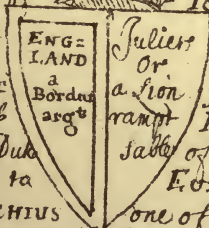 ENG=
LAND
a
Bordur
argt
Juliers
Or
a Lion
rampt
sable
Duke
ta
CHIUS
of
one of